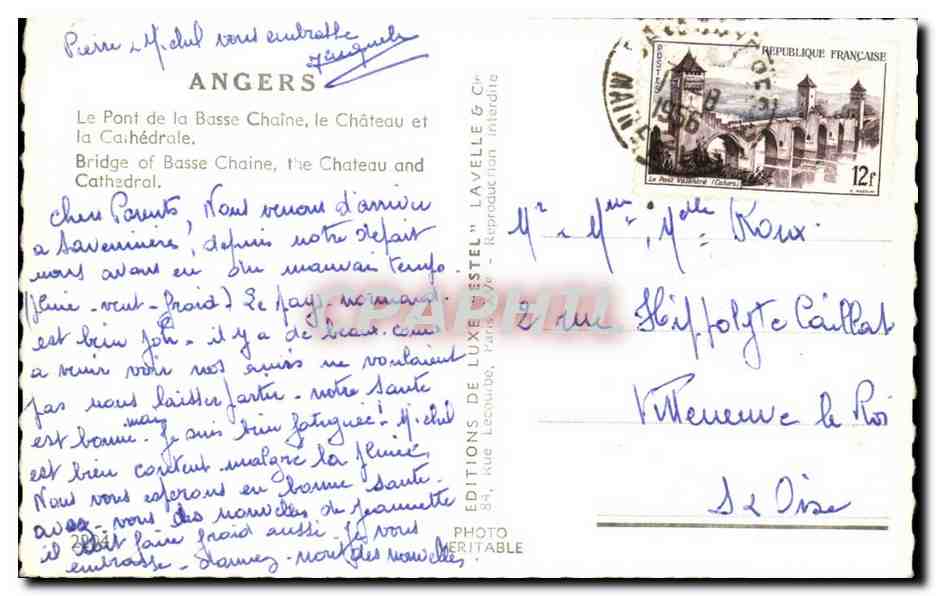 Pierre Michel vous embrasse
ANGERS
Le Pont de la Basse Chaîne, le Château et
la Cathédrale.
Bridge of Basse Chaine, the Chateau and
Cathedral.
chers Parents, Nous venons d'arriver
a Savennières, depuis notre départ
nous avons eu du mauvais temps
pluie - vent - froid) Le pays normand
est bien joli - il y a de beaux coins
a venir voir nos amis ne voulaient
pas nous laisser partir - notre santé
est bonne mais je suis bien fatiguée! Michel
est bien content malgré la pluie,
Nous vous espérons en bonne santé -
avez-vous des nouvelles de Jeannette
il doit faire froid aussi - Je vous
embrasse - donnez-nous des nouvelles
PHOTO
VERITABLE
EDITIONS DE LUXE "ESTEL" LAVELLE & Cie
84, Rue Lecourbe, Paris XVe - Reproduction Interdite
CPAPHIL
POSTES
REPUBLIQUE FRANÇAISE
Le Pont Valentré (Cahors)
12f
1956
MAINE
Mr & Mme, Mdlle Roux
2 rue Hippolyte Caillat
Villeneuve le Roi
S & Oise